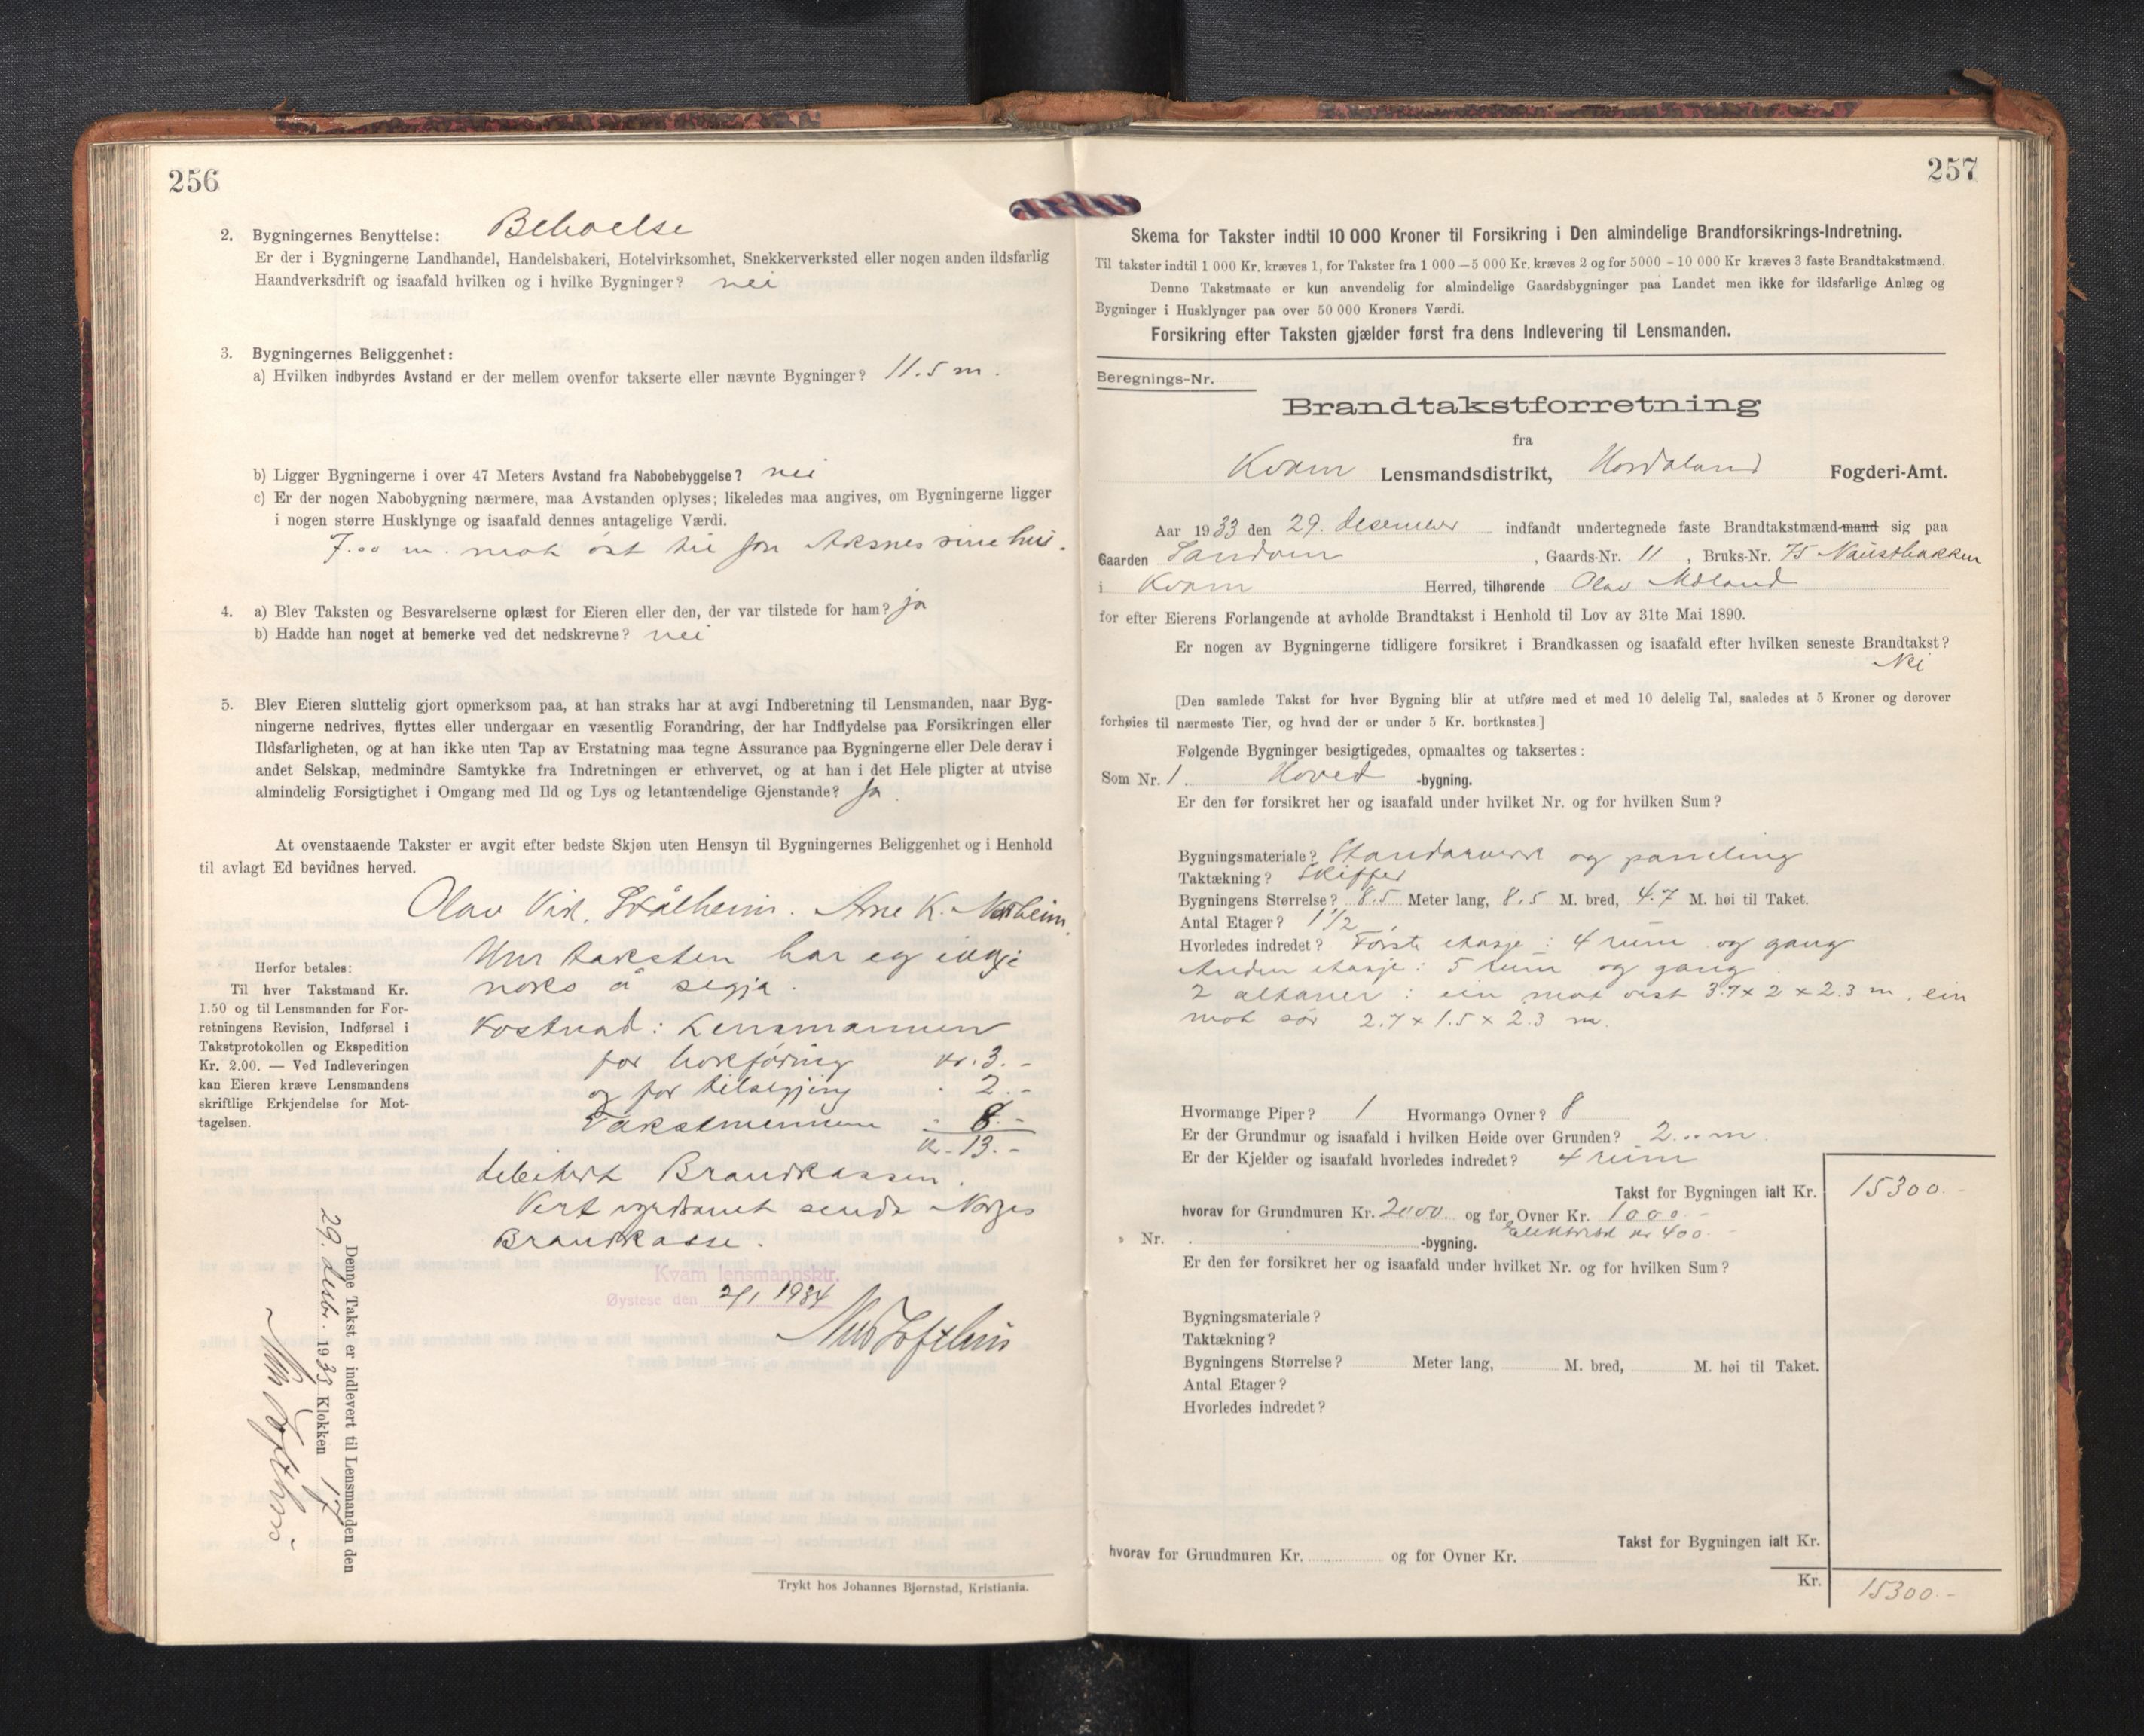 256
2. Bygningernes Benyttelse: Beboelse
Er der i Bygningerne Landhandel, Handelsbakeri, Hotelvirksomhet, Snekkerverksted eller nogen anden ildsfarlig
Haandverksdrift og isaafald hvilken og i hvilke Bygninger? nei
3. Bygningernes Beliggenhet:
a) Hvilken indbyrdes Avstand er der mellem ovenfor takserte eller nævnte Bygninger? 11.5 m.
b) Ligger Bygningerne i over 47 Meters Avstand fra Nabobebyggelse? nei
c) Er der nogen Nabobygning nærmere, maa Avstanden oplyses; likeledes maa angives, om Bygningerne ligger
i nogen større Husklynge og isaafald dennes antagelige Værdi.
7.00 m. mot øst til Jon Aksnes sine hus.
4. a) Blev Taksten og Besvarelserne oplæst for Eieren eller den, der var tilstede for ham? ja
b) Hadde han noget at bemerke ved det nedskrevne? nei
5. Blev Eieren sluttelig gjort opmerksom paa, at han straks har at avgi Indberetning til Lensmanden, naar Byg-
ningerne nedrives, flyttes eller undergaar en væsentlig Forandring, der har Indflydelse paa Forsikringen eller
Ildsfarligheten, og at han ikke uten Tap av Erstatning maa tegne Assurance paa Bygningerne eller Dele derav i
andet Selskap, medmindre Samtykke fra Indretningen er erhvervet, og at han i det Hele pligter at utvise
almindelig Forsigtighet i Omgang med Ild og Lys og letantændelige Gjenstande? Ja
At ovenstaaende Takster er avgit efter bedste Skjøn uten Hensyn til Bygningernes Beliggenhet og i Henhold
til avlagt Ed bevidnes herved.
Olav Vik. Stålheim. Arne K. Norheim.
Um taksten har eg inkje
noko å segja.
Kostnad: Lensmannen
for bokføring kr. 3.-
og for tilsegjing " 2.-
Takstmennene " 8.-
kr. 13.-
debitert Brandkassen.
Vert vyrdsamt sendt Norges
Brandkasse.
Kvam lensmannsktr.
Øystese den 2/1 1934
Nils Tofthus
Herfor betales:
Til hver Takstmand Kr.
1.50 og til Lensmanden for For-
retningens Revision, Indførsel i
Takstprotokollen og Ekspedition
Kr. 2.00. — Ved Indleveringen
kan Eieren kræve Lensmandens
skriftlige Erkjendelse for Mot-
tagelsen.
Denne Takst er indlevert til Lensmanden den
29. desbr. 1933 Klokken 17
Nils Tofthus
Trykt hos Johannes Bjørnstad, Kristiania.
257
Skema for Takster indtil 10 000 Kroner til Forsikring i Den almindelige Brandforsikrings-Indretning.
Til takster indtil 1 000 Kr. kræves 1, for Takster fra 1 000 — 5 000 Kr. kræves 2 og for 5000 - 10 000 Kr kræves 3 faste Brandtakstmænd.
Denne Takstmaate er kun anvendelig for almindelige Gaardsbygninger paa Landet men ikke for ildsfarlige Anlæg og
Bygninger i Husklynger paa over 50 000 Kroners Værdi.
Forsikring efter Taksten gjælder først fra dens Indlevering til Lensmanden.
Beregnings-Nr.
Brandtakstforretning
fra
Kvam Lensmandsdistrikt, Hordaland Fogderi-Amt.
Aar 1933 den 29. desember indfandt undertegnede faste Brandtakstmænd-mand sig paa
Gaarden Sandven, Gaards-Nr. 11, Bruks-Nr. 75 Naustbakken
i Kvam Herred, tilhørende Olav Mæland
for efter Eierens Forlangende at avholde Brandtakst i Henhold til Lov av 31te Mai 1890.
Er nogen av Bygningerne tidligere forsikret i Brandkassen og isaafald efter hvilken seneste Brandtakst?
Nei
[Den samlede Takst for hver Bygning blir at utføre med et med 10 delelig Tal, saaledes at 5 Kroner og derover
forhøies til nærmeste Tier, og hvad der er under 5 Kr. bortkastes.]
Følgende Bygninger besigtigedes, opmaaltes og taksertes:
Som Nr. 1. Hoved -bygning.
Er den før forsikret her og isaafald under hvilket Nr. og for hvilken Sum?
Bygningsmateriale? Standarverk og paneling
Taktækning? Skiffer
Bygningens Størrelse? 8.5 Meter lang, 8.5 M. bred, 4.7 M. høi til Taket.
Antal Etager? 1 1/2
Hvorledes indredet? Første etasje: 4 rum og gang
Anden etasje: 5 rum og gang
2 altaner: ein mot vest 3.7 x 2 x 2.3 m, ein
mot sør 2.7 x 1.5 x 2.3 m.
Hvormange Piper? 1 Hvormange Ovner? 8
Er der Grundmur og isaafald i hvilken Høide over Grunden? 2.00 m
Er der Kjelder og isaafald hvorledes indredet? 4 rum
Takst for Bygningen ialt Kr. 15300.-
hvorav for Grundmuren Kr. 2000 og for Ovner Kr. 1000.-
Elektrisk kr 400.-
" Nr. -bygning.
Er den før forsikret her og isaafald under hvilket Nr. og for hvilken Sum?
Bygningsmateriale?
Taktækning?
Bygningens Størrelse? Meter lang, M. bred, M. høi til Taket.
Antal Etager?
Hvorledes indredet?
Takst for Bygningen ialt Kr.
hvorav for Grundmuren Kr. og for Ovner Kr.
Kr. 15300.-